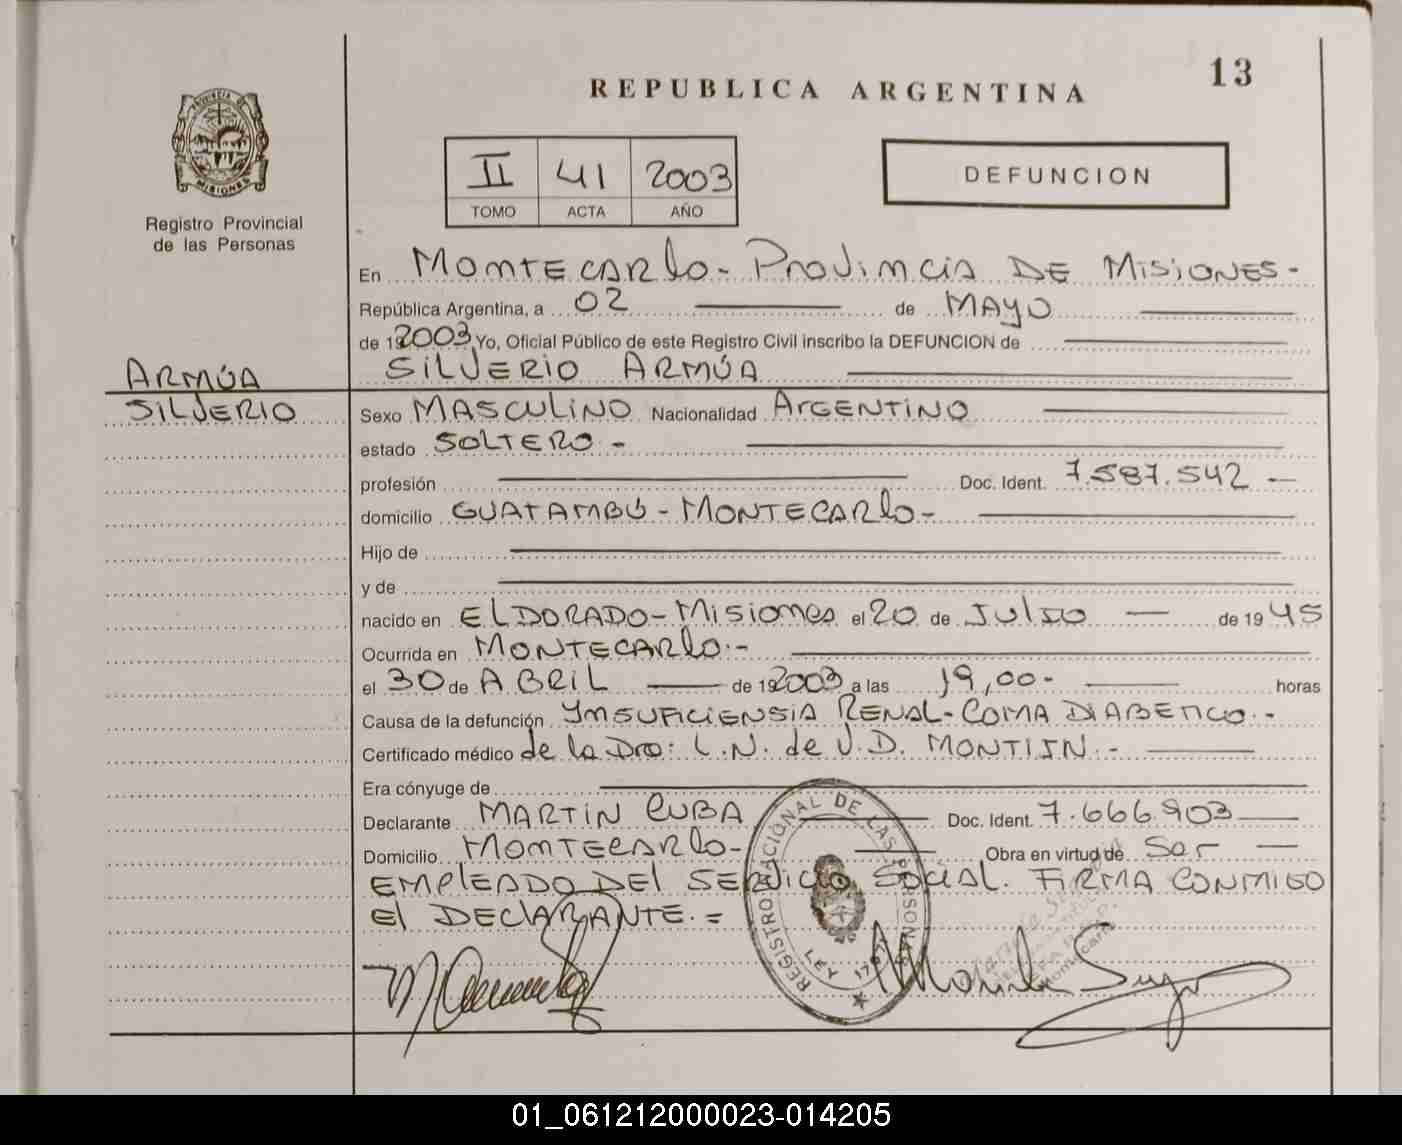 13
REPUBLICA ARGENTINA
PROVINCIA DE MISIONES
Registro Provincial
de las Personas
II 41 2003
TOMO ACTA AÑO
DEFUNCION
En MONTECARLO - PROVINCIA DE MISIONES -
República Argentina, a 02 de MAYO
de 2003 Yo, Oficial Público de este Registro Civil inscribo la DEFUNCION de
SILVERIO ARMÚA
ARMÚA
SILVERIO
Sexo MASCULINO Nacionalidad ARGENTINO
estado SOLTERO -
profesión Doc. Ident. 7.587.542 -
domicilio GUATAMBÚ - MONTECARLO -
Hijo de
y de
nacido en ELDORADO - Misiones el 20 de JULIO de 1945
Ocurrida en MONTECARLO.-
el 30 de ABRIL de 2003 a las 19,00- horas
Causa de la defunción YNSUFICIENSIA RENAL - COMA DIABETICO.-
Certificado médico de la Dra: L.N. de V.D. MONTIJN.-
Era cónyuge de
Declarante MARTIN CUBA Doc. Ident. 7.666.903
Domicilio MONTECARLO - Obra en virtud de Ser
EMPLEADO DEL SERVICIO SOCIAL. FIRMA CONMIGO
El DECLARANTE.=
REGISTRO NACIONAL DE LAS PERSONAS
LEY
01_061212000023-014205